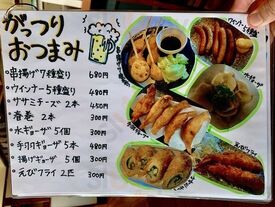 がっつり
おつまみ
串揚げ7種盛り 680円
ウインナー5種盛り 480円
ササミチーズ 2本 450円
春巻 2本 300円
水ギョーザ 5個 300円
手羽ギョーザ 5本 480円
揚げギョーザ 5個 300円
えびフライ 2匹 300円
ウインナー5種盛り
水ギョーザ
えびフライ